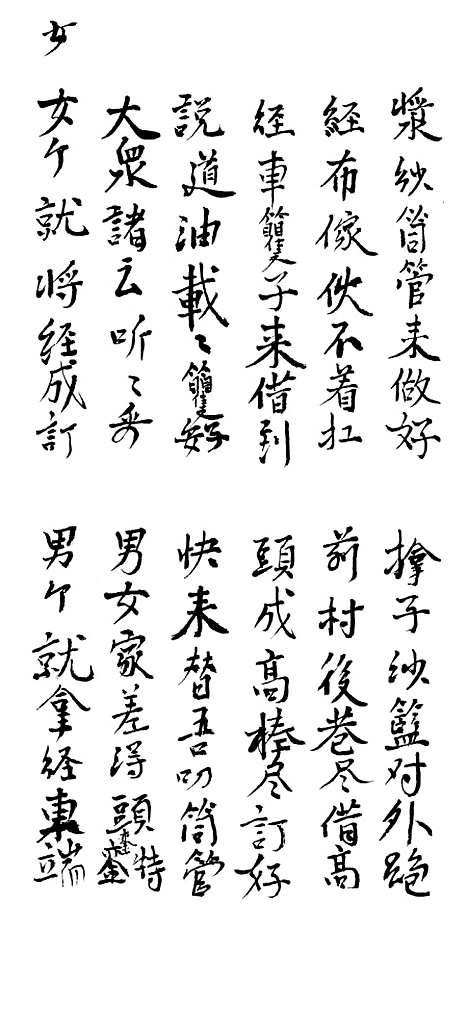 漿紗筒管来做好
擰子紗籃对外跑
経布傢伙不着扛
前村後巷尽借高
経車子来借到
頭成高棒尽訂好
説道油載〻
快来替吾叨筒管
大衆諸云听〻
男女家差得頭特
女个就将経成訂
男个就拿経車端
女